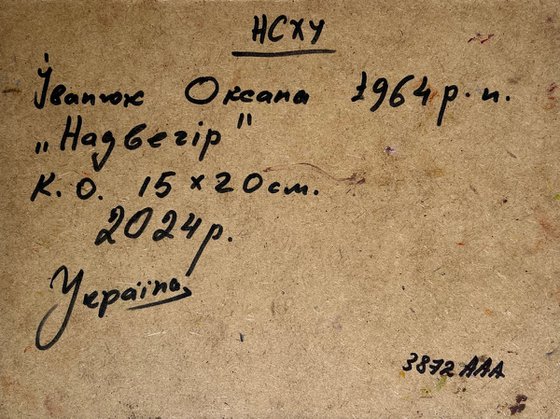 НСХУ
Іванюк Оксана 1964р.н.
„Надвечір"
К.О. 15×20см.
2024р.
Україна
3872 AAA